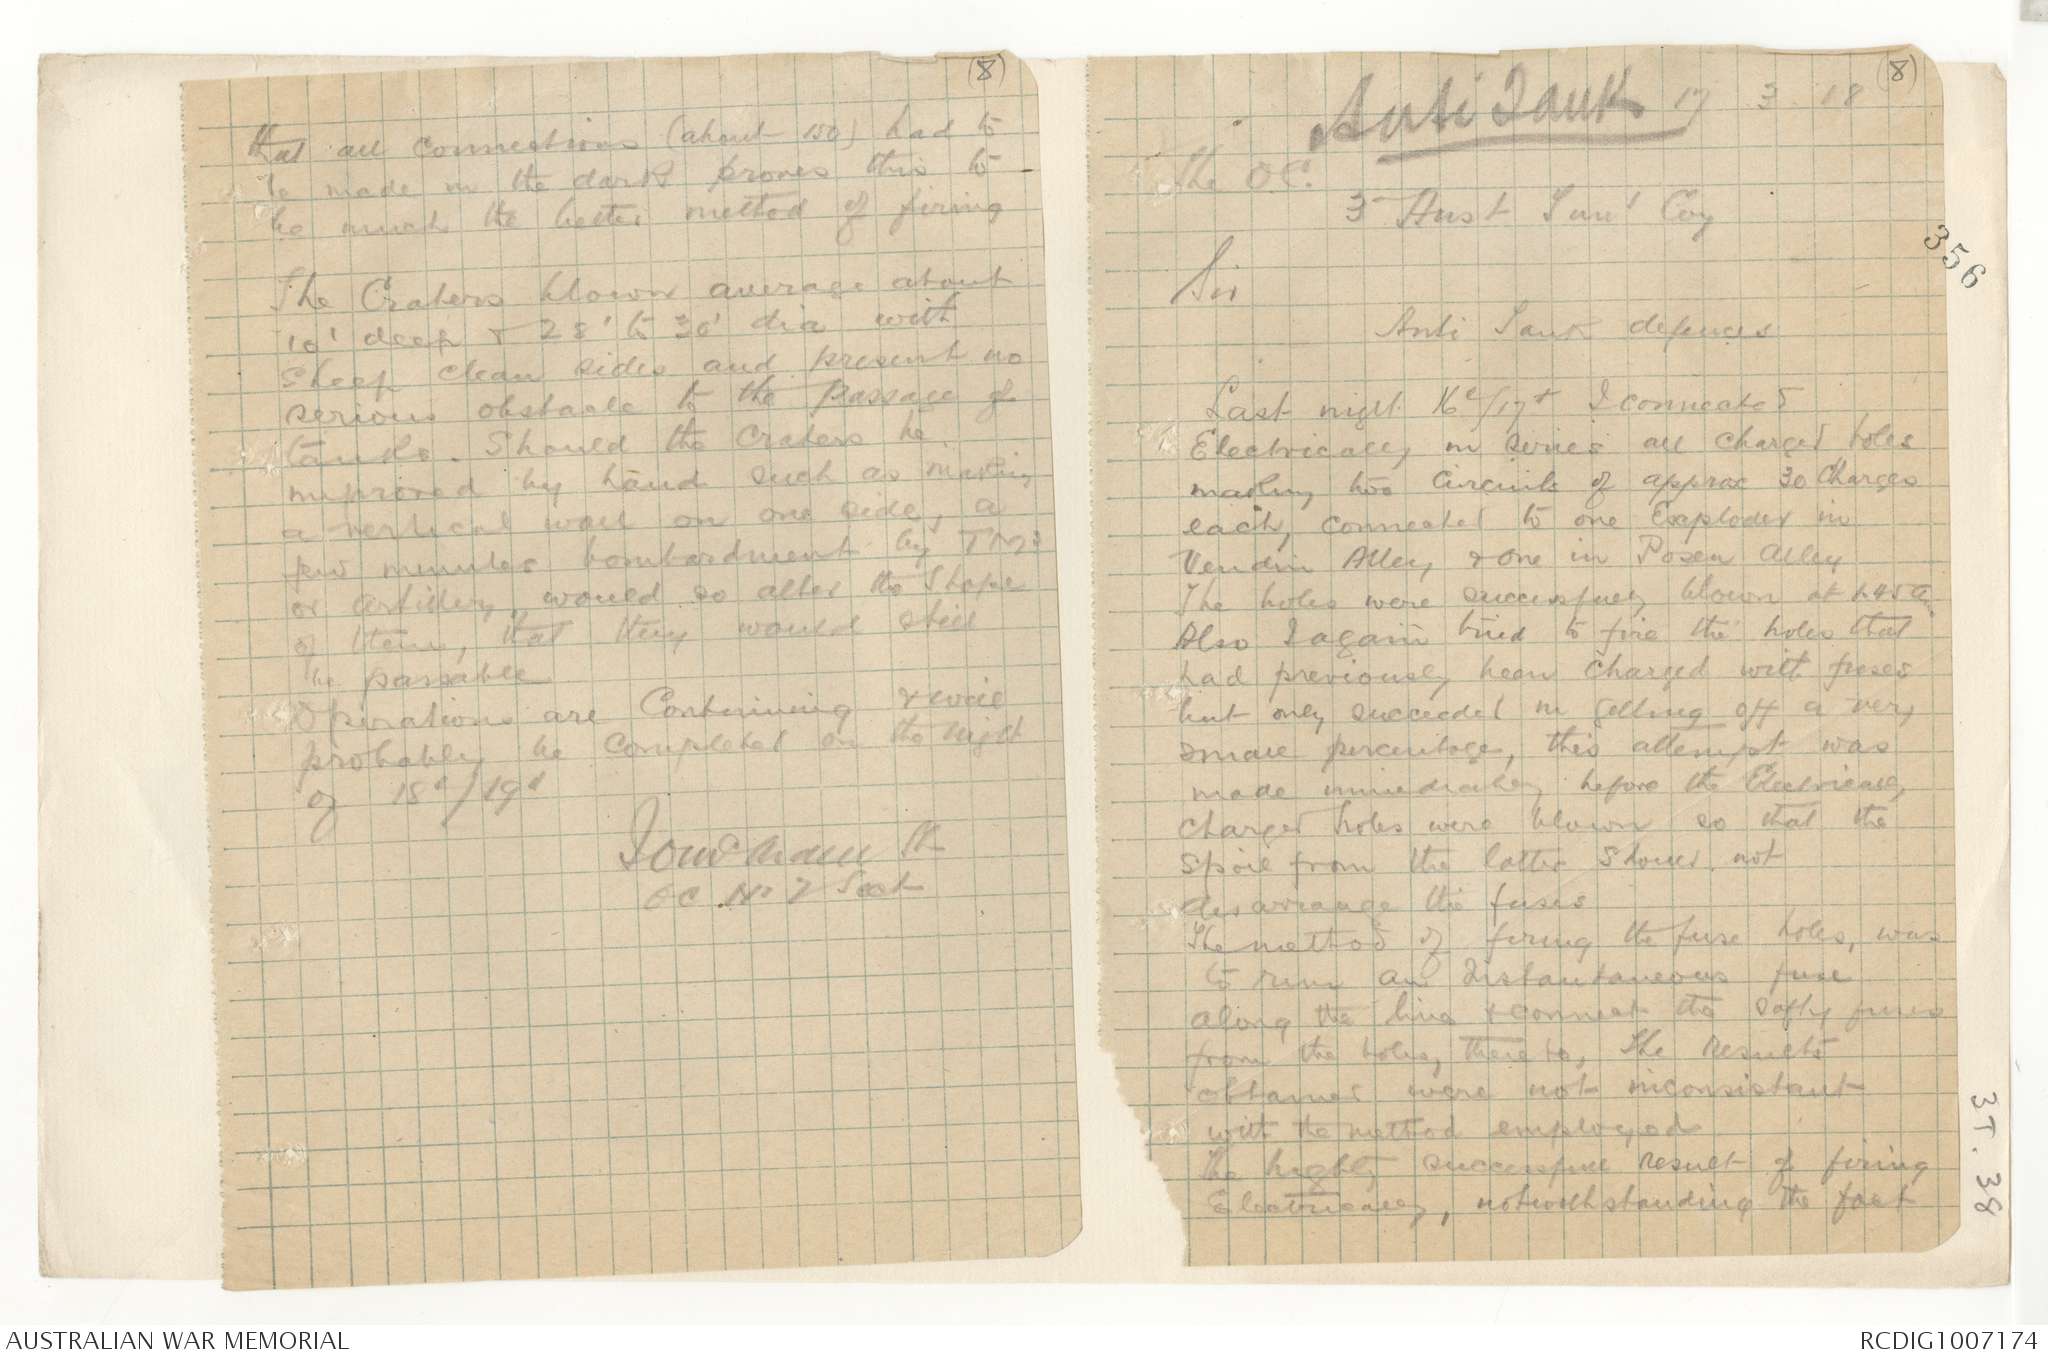 (8)
that all connections (about 150) had to
be made in the dark proves this to
be much the better method of firing
The Craters blown average about
10' deep & 28' to 30' dia with
steep clean sides and present no
serious obstacle to the passage of
tanks. Should the Craters be
improved by hand such as making
a vertical wall on one side, a
few minutes bombardment by TMs
or artillery, would so alter the shape
of them, that they would still
be passable
Operations are Continuing & will
probably be completed on the night
of 18th/19th
OC No 2 Sect
(8)
Anti Tank 17 3 18
The O.C.
3rd Aust Tun' Coy
Sir
Anti Tank defences
Last night 16th/17th I connected
Electrically in series all charged holes
making two Circuits of approx 30 Charges
each, connected to one Exploder in
Vendin Alley & one in Posen Alley
The holes were successfully blown at 4.45 a.
Also I again tried to fire the holes that
had previously been charged with fuses
but only succeeded in getting off a very
small percentage, this attempt was
made immediately before the Electrically
charged holes were blown so that the
spoil from the latter should not
disarrange the fuses
The method of firing the fuse holes, was
to run an Instantaneous fuse
along the line & connect the safty fuses
from the holes, thereto, The Results
obtained were not inconsistant
with the method employed
The highly successful Result of firing
Electrically, notwithstanding the fact
356
3T.38
AUSTRALIAN WAR MEMORIAL
RCDIG1007174